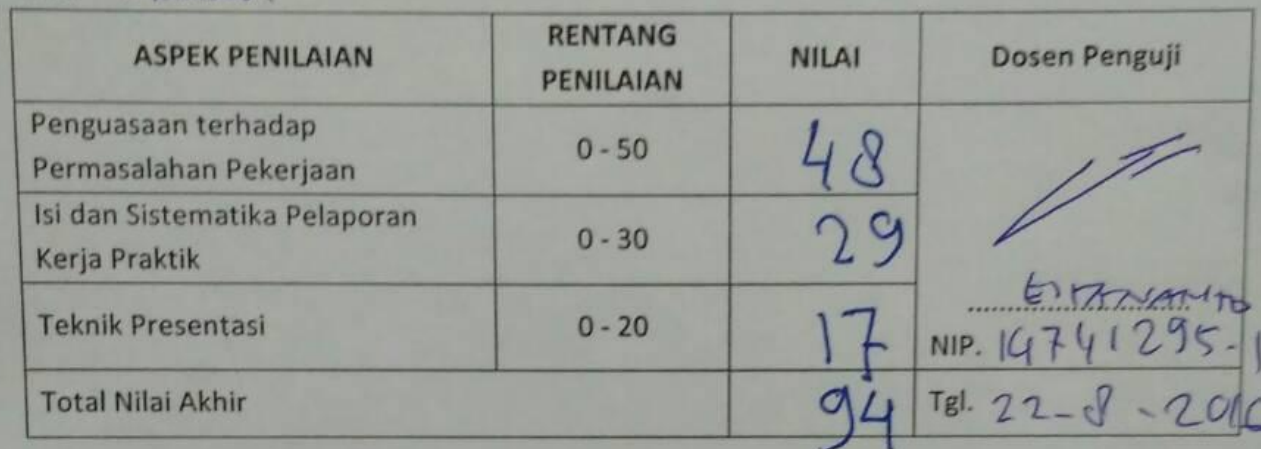 ASPEK PENILAIAN
RENTANG PENILAIAN
NILAI
Dosen Penguji
Penguasaan terhadap
Permasalahan Pekerjaan
0 - 50
48
Isi dan Sistematika Pelaporan
Kerja Praktik
0 - 30
29
Teknik Presentasi
0 - 20
17
NIP. 14741295-
Total Nilai Akhir
94
Tgl. 22-8-2016